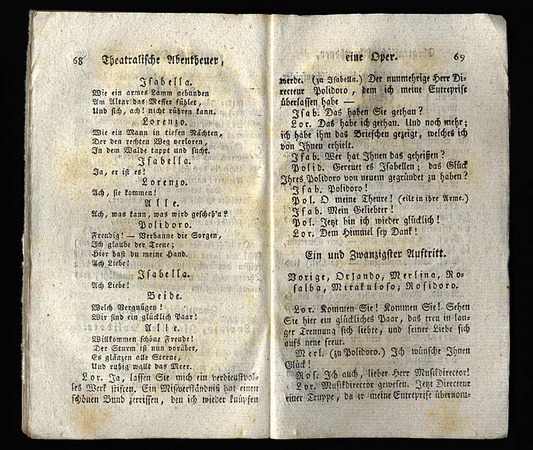 68 Theatralische Abentheuer,
Isabella.
Wie ein armes Lamm gebunden
Am Altar das Messer fühlet,
Und sich, ach! nicht rühren kann.
Lorenzo.
Wie ein Mann in tiefen Nächten,
Der den rechten Weg verloren,
In dem Walde tappt und sucht.
Isabella.
Ja, er ist es!
Lorenzo.
Ach, sie kommen!
Alle.
Ach, was kann, was wird gescheh'n?
Polidoro.
Freudig! — Verbanne die Sorgen,
Ich glaube der Treue;
Hier hast du meine Hand.
Ach Liebe!
Isabella.
Ach Liebe!
Beide.
Welch Vergnügen!
Wir sind ein glücklich Paar!
Alle.
Willkommen schöne Freude!
Der Sturm ist nun vorüber,
Es glänzen alle Sterne,
Und ruhig wallt das Meer.
Lor. Ja, lassen Sie mich ein verdienstvol-
les Werk stiften. Ein Misverständniß hat einen
schönen Bund zerrissen, den ich wieder knüpfen
eine Oper. 69
werde. (zu Isabella.) Der nunmehrige Herr Di-
recteur Polidoro, dem ich meine Entreprise
überlassen habe —
Isab. Das haben Sie gethan?
Lor. Das habe ich gethan. Und noch mehr;
ich habe ihm das Brieschen gezeigt, welches ich
von Ihnen erhielt.
Isab. Wer hat Ihnen das geheißen?
Polid. Gereuet es Isabellen; das Glück
Ihres Polidoro von neuem gegründet zu haben?
Isab. Polidoro!
Pol. O meine Theure! (eilt in ihre Arme.)
Isab. Mein Geliebter!
Pol. Jetzt bin ich wieder glücklich!
Lor. Dem Himmel sey Dank!
Ein und Zwanzigster Auftritt.
Vorige, Orlando, Merlina, Ro-
salba, Mirakulofo, Rosidoro.
Lor. Kommen Sie! Kommen Sie! Sehen
Sie hier ein glückliches Paar, das treu in lan-
ger Trennung sich liebte, und seiner Liebe sich
aufs neue freut.
Merl. (zu Polidoro.) Ich wünsche Ihnen
Glück!
Ros. Ich auch, lieber Herr Musikdirector!
Lor. Musikdirector gewesen. Jetzt Directeur
einer Truppe, da er meine Entreprise übernom-